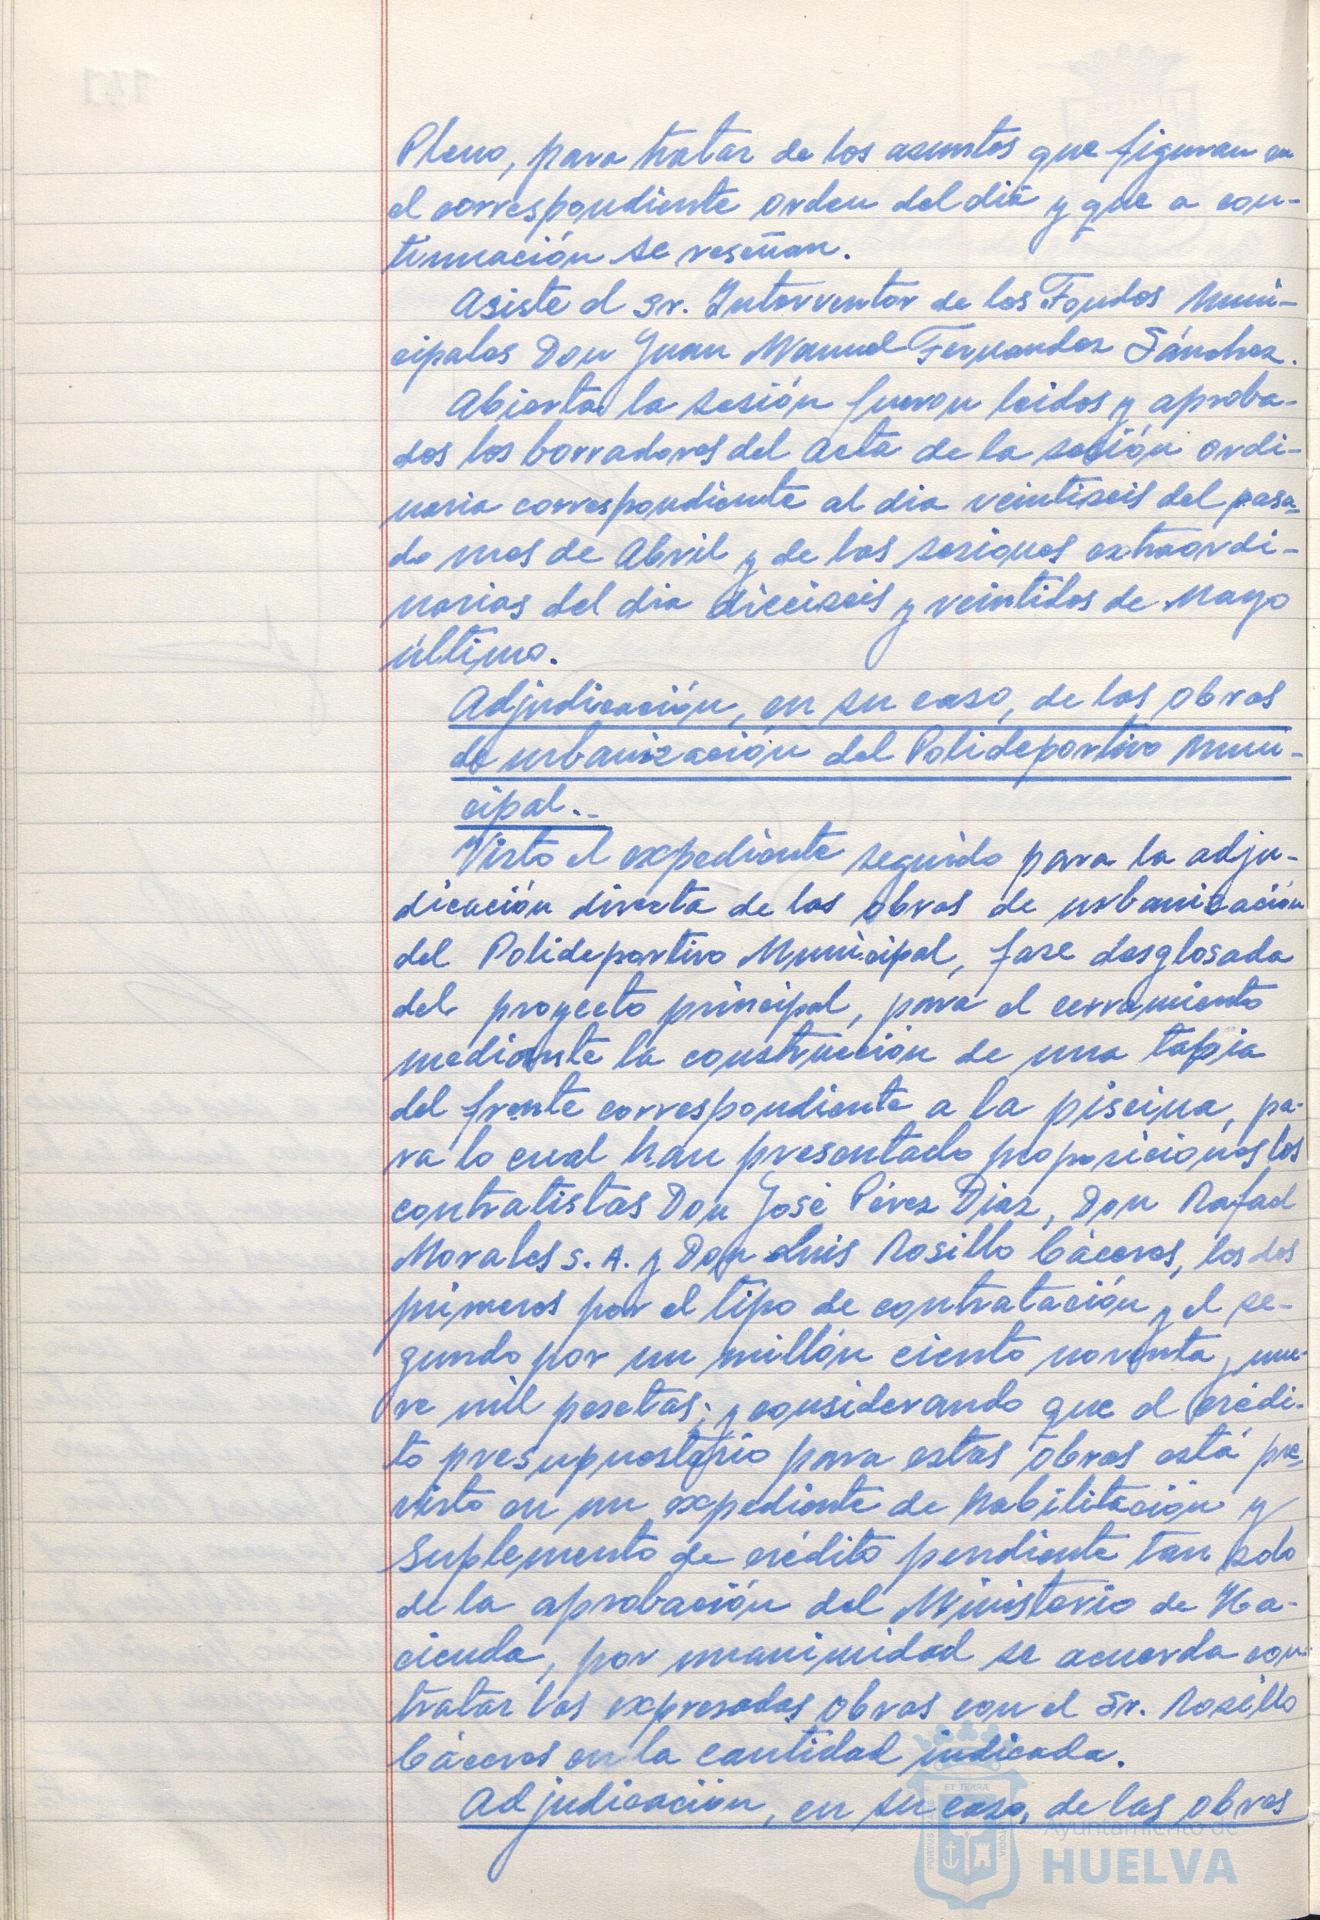 Pleno, para tratar de los asuntos que figuran en
el correspondiente orden del dia y que a con-
tinuación se reseñan.
Asiste el Sr. Interventor de los Fondos Muni-
cipales Don Juan Manuel Fernandez Sánchez.
Abierta la sesión fueron leidos y aproba-
dos los borradores del acta de la sesión ordi-
naria correspondiente al dia veintiseis del pasa-
do mes de Abril y de las sesiones extraordi-
narias del dia dieciseis y veintidos de Mayo
último.
Adjudicación, en su caso, de las obras
de urbanización del Polideportivo Muni-
cipal.-
Visto el expediente seguido para la adju-
dicación directa de las obras de urbanización
del Polideportivo Municipal, fase desglosada
del proyecto principal, para el cerramiento
mediante la construcción de una tapia
del frente correspondiente a la piscina, pa-
ra lo cual han presentado proposiciones los
contratistas Don José Pérez Diaz, Don Rafael
Morales S. A. y Don Luis Rosillo Cáceres, los dos
primeros por el tipo de contratación y el se-
gundo por un millón ciento noventa y nue-
ve mil pesetas; y considerando que el crédi-
to presupuestario para estas obras está pre-
visto en un expediente de habilitación y
Suplemento de crédito pendiente tan solo
de la aprobación del Ministerio de Ha-
cienda, por unanimidad se acuerda con-
tratar las expresadas obras con el Sr. Rosillo
Cáceres en la cantidad indicada.
Adjudicación, en su caso, de las obras
Ayuntamiento de
HUELVA